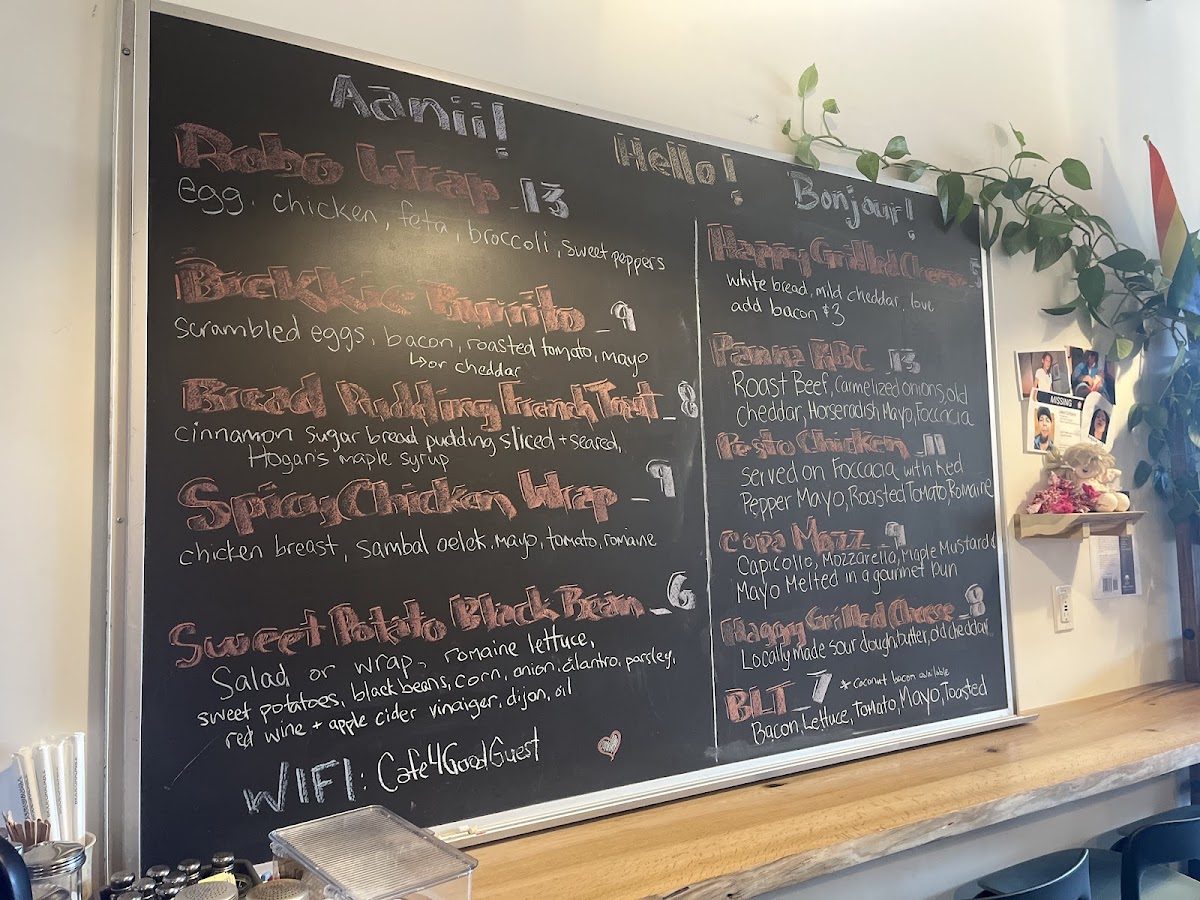 Aanii!
Hello!
Bonjour!
Robo Wrap 13
egg, chicken, feta, broccoli, sweet peppers
Burrito 9
scrambled eggs, bacon, roasted tomato, mayo
↳or cheddar
Bread Pudding French Toast 8
cinnamon sugar bread pudding sliced + seared,
Hogan's maple syrup
Spicy Chicken Wrap 9
chicken breast, sambal oelek, mayo, tomato, romaine
Sweet Potato Black Bean 6
Salad or wrap, romaine lettuce,
sweet potatoes, black beans, corn, onion, cilantro, parsley,
red wine + apple cider vinaiger, dijon, oil
WIFI: Cafe4GoodGuest
Happy Grilled Cheese 5
white bread, mild cheddar, love
add bacon $3
RBC 13
Roast Beef, Carmelized onions, old
cheddar, Horseradish Mayo, Foccacia
Pesto Chicken 11
Served on Foccacia with Red
Pepper Mayo, Roasted Tomato, Romaine
Copa Mozz 9
Capicollo, Mozzarella, Maple Mustard &
Mayo Melted in a gourmet bun
Happy Grilled Cheese 8
Locally made sour dough, butter, old cheddar
BLT 7 * Coconut bacon available
Bacon, Lettuce, Tomato, Mayo, Toasted
MISSING